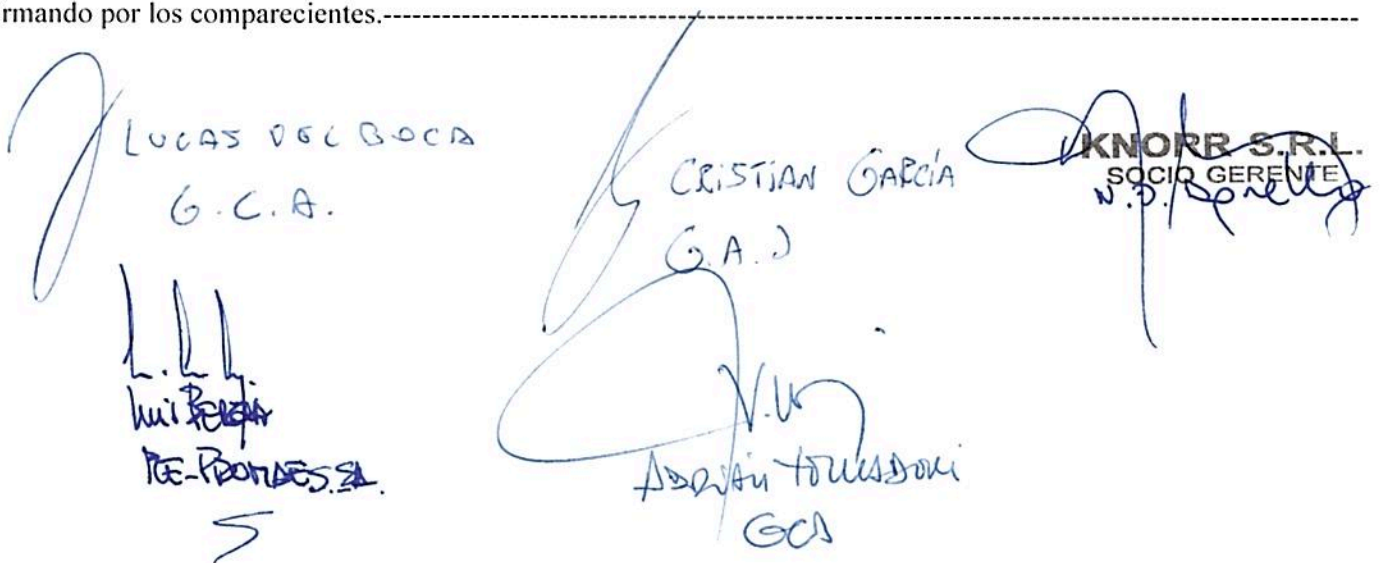 rmando por los comparecientes.------------------------------------------------------------
LUCAS DEL BOCA
G.C.A.
CRISTIAN GARCÍA
G.A.J
KNORR S.R.L.
SOCIO GERENTE
N.D.
Luis
S.A.
ADRIÁN
GCA